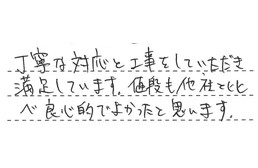 丁寧な対応と工事をしていただき
満足しています。値段も他社と比
べ良心的でよかったと思います。